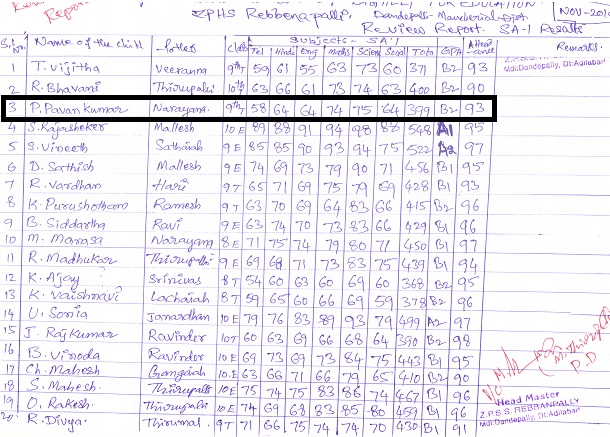 Report
ZPHS Rebbenapalli, Dandepally-Mancherial-Dist.
NOV-201
Review Report. SA-1 Results
S.l No. Name of the child Father Class Subjects - SA1 Tel Hindi Eng maths Scien Social Total GPA Attendance Remarks.
1 T. Vijitha Veeranna 9th 59 61 55 63 73 60 371 B2 93
Mdl:Dandepally, Dt:Adilabad
2 R. Bhavani Thirupathi 10th 63 66 61 73 74 63 400 B2 90
3 P. Pavan kumar Narayana 9th 58 64 64 74 75 64 399 B2 93
4 S. Kajasheker Mallesh 10E 89 88 91 94 98 88 548 A1 95
5 S. Vineeth Sathaiah 9E 85 85 90 93 94 75 522 A2 97
6 D. Sathish Mallesh 9E 74 69 73 79 90 71 456 B1 95
7 R. Vardhan Hari 9T 65 71 69 75 79 69 428 B1 93
8 K. Purushotham Ramesh 9T 63 70 69 64 83 66 415 B2 96
9 B. Siddartha Ravi 9E 63 74 70 73 83 66 429 B1 96
10 M. Manasa Narayana 8E 71 75 74 79 80 71 450 B1 97
11 R. Madhukar Thirupathi 9E 69 69 71 73 83 75 439 B1 94
12 K. Ajay Srinivas 8T 54 60 63 60 69 60 368 B2 95
13 K. Vaishnavi Lachaiah 8T 59 65 60 66 69 59 378 B2 96
14 U. Sonia Janardhan 10E 79 76 83 89 93 79 499 A2 97
15 J. Raj Kumar Ravinder 10T 60 63 69 66 68 64 390 B2 98
16 B. Vinoda Ravinder 10E 69 73 69 73 84 75 443 B1 95
17 Ch. Mahesh 10E 63 66 71 66 79 65 410 B2 90
18 S. Mahesh Thirupathi 10E 75 74 75 83 86 74 467 B1 96
Head Master
19 O. Rakesh. Thirupathi 10E 74 69 68 83 85 80 459 B1 96
Z.P.S.S. REBBANPALLY
Mdl:Dandepally, Dt:Adilabad
20 R. Divya. Thirumal 9T 71 66 75 74 74 70 430 B1 91
P.D